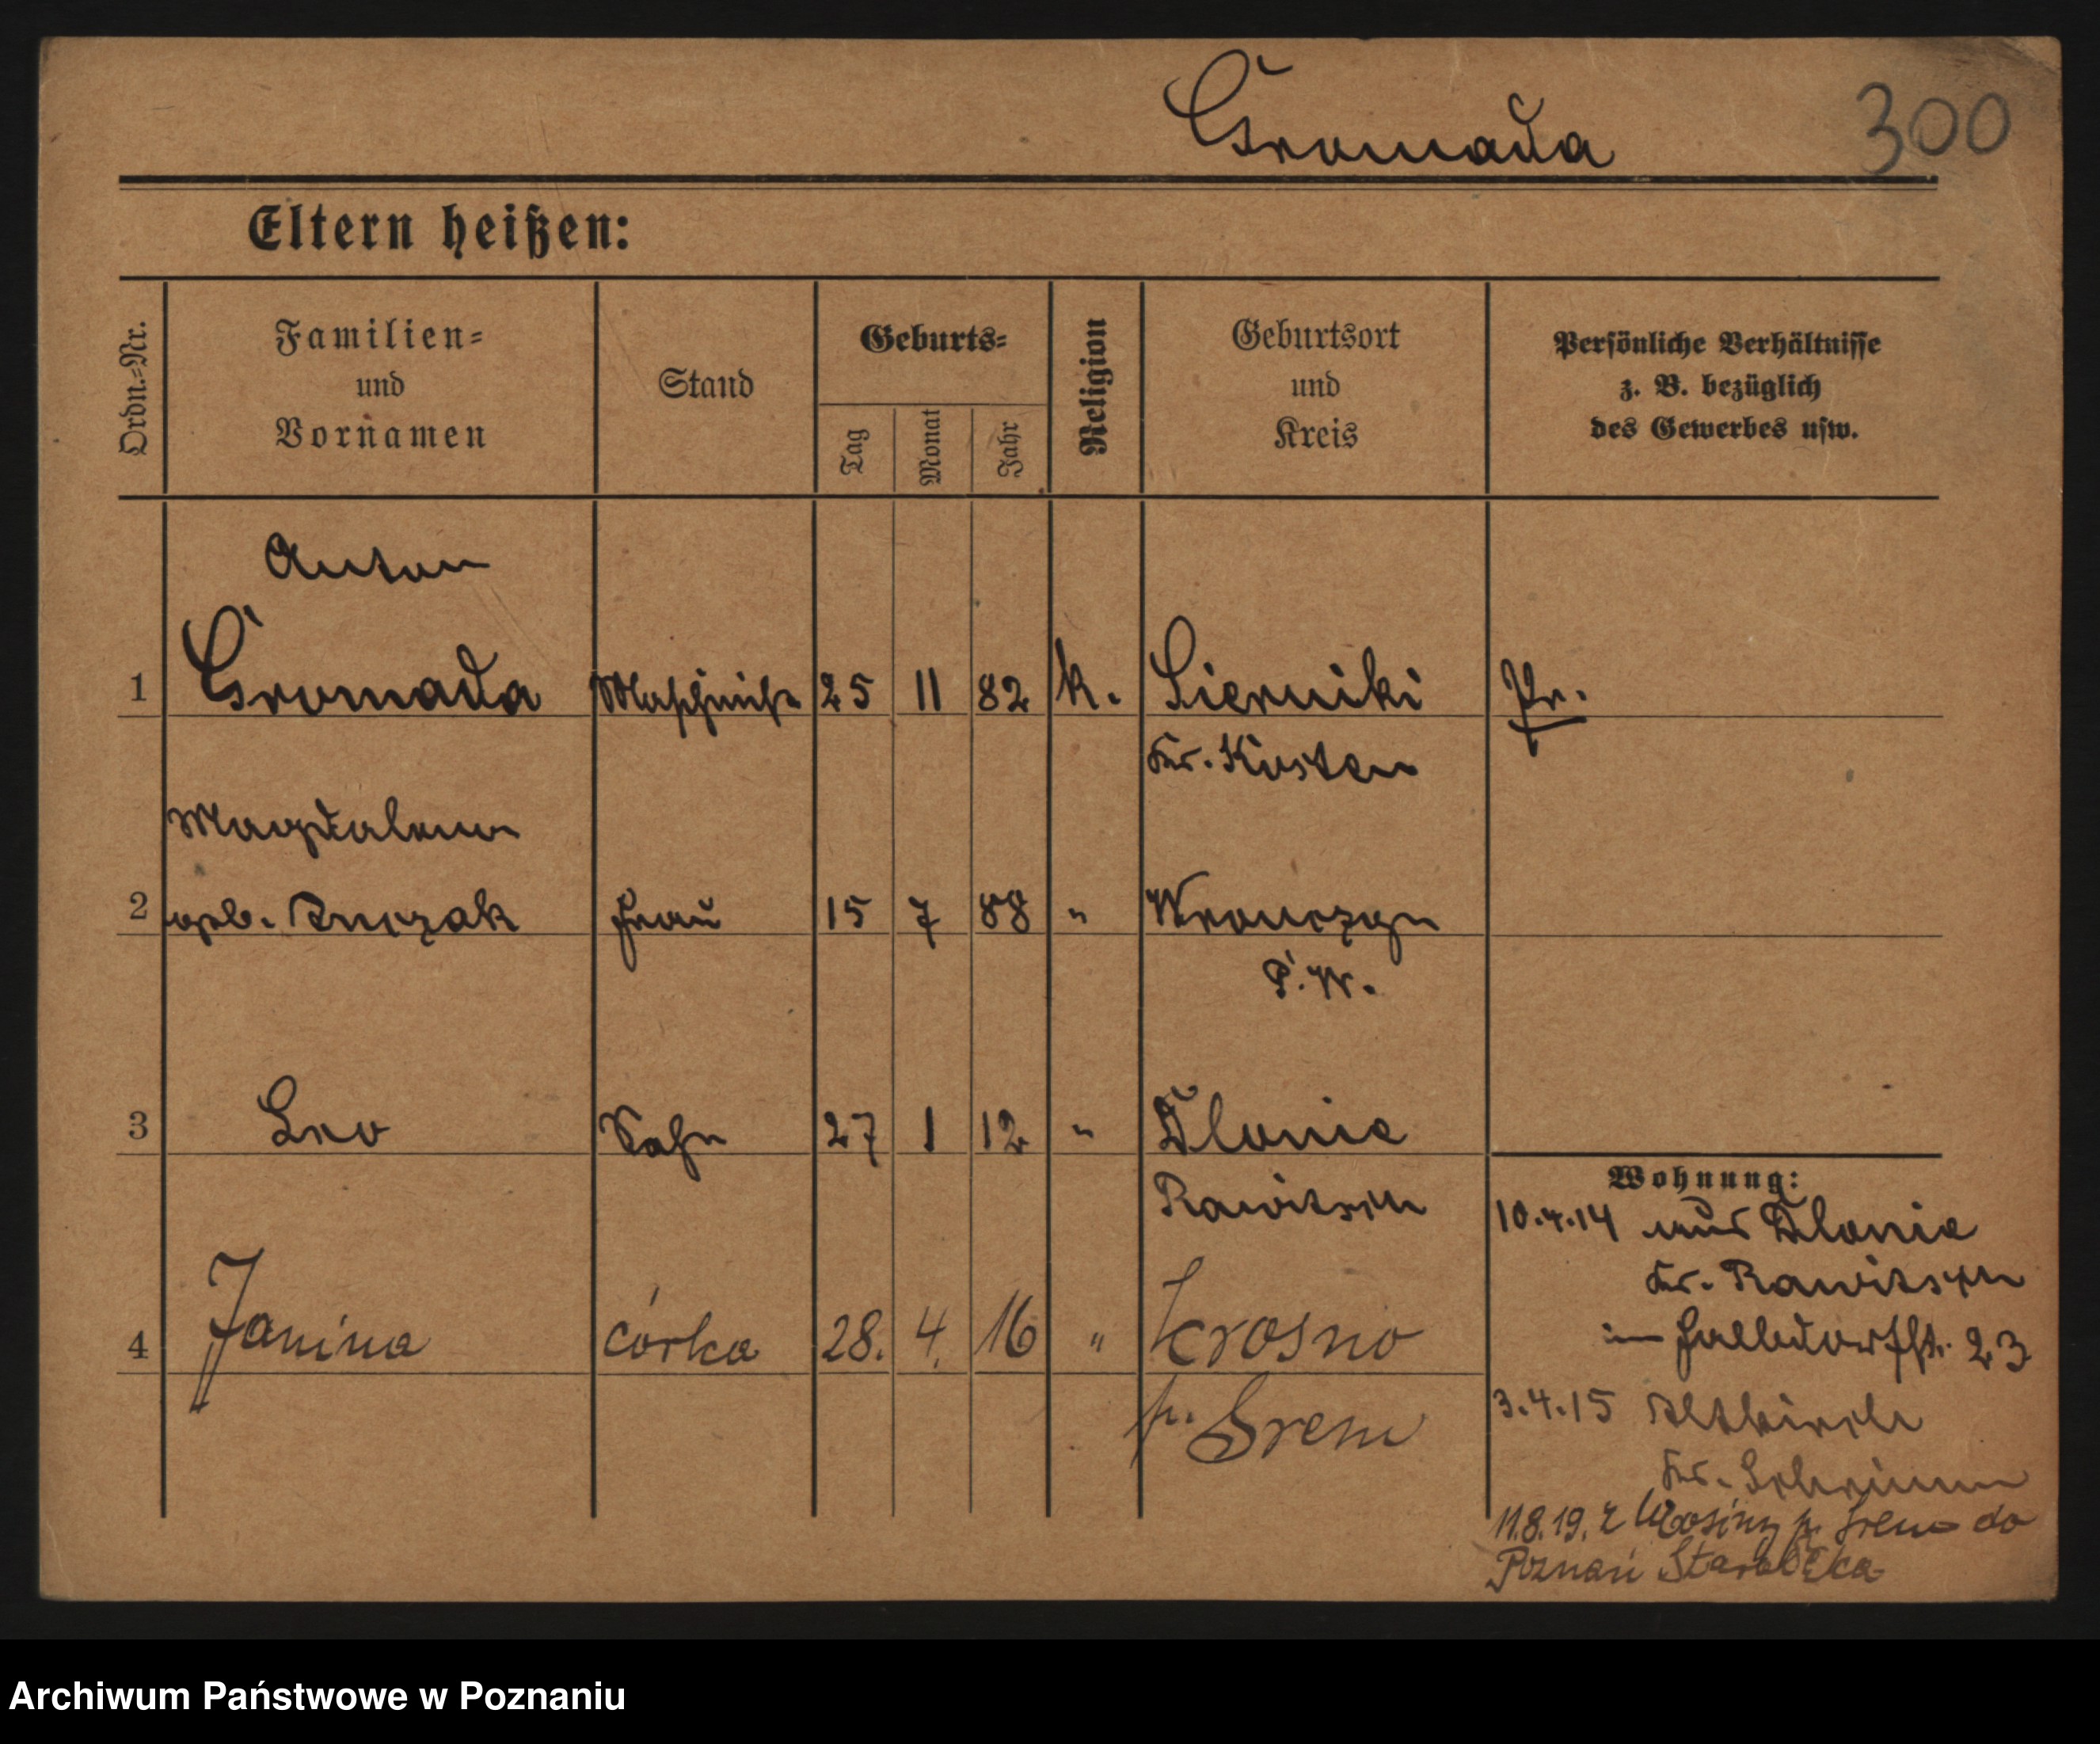 Gromada 300
Eltern heißen:
Ordn.-Nr.
Familien-
und
Vornamen
Stand
Geburts-
Tag
Monat
Jahr
Religion
Geburtsort
und
Kreis
Persönliche Verhältnisse
z. B. bezüglich
des Gewerbes usw.
Anton
1 Gromada Maschinist 25 11 82 k. Sierniki Pr.
Kr. Kosten
Magdalena
2 geb. Frau 15 7 88 " Wronczyn
P. W.
3 Leo Sohn 27 1 12 " Dlonie
Rawitsch
Wohnung:
10.4.14 aus Dlonie
Kr. Rawitsch
4 Janina córka 28. 4. 16 " Krosno
p. Śrem
23
3.4.15 Altkirch
Kr. Schrimm
11.8.19. z Mosiny p. Śrem do
Poznań Starołęka
Archiwum Państwowe w Poznaniu